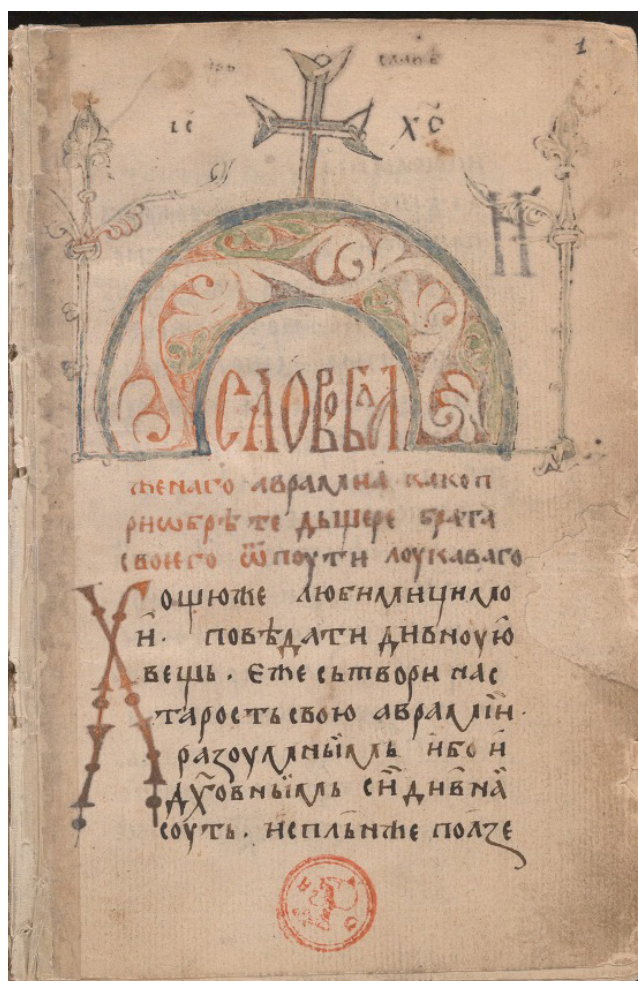 1
ІС ХС
Н
СЛОВО БЛА
женаго авраамиа како п
риѡбрѣте дьщере брата
своего ѿ поути лоукаваго
Хощюже любимици мло
и. повѣдати дивноую
вещь. еже сьтвори нас
тарость свою авраамїи.
разоумныїмь ибо и
дх҃овныїмь сїи дивна
соуть. испльнже ползе